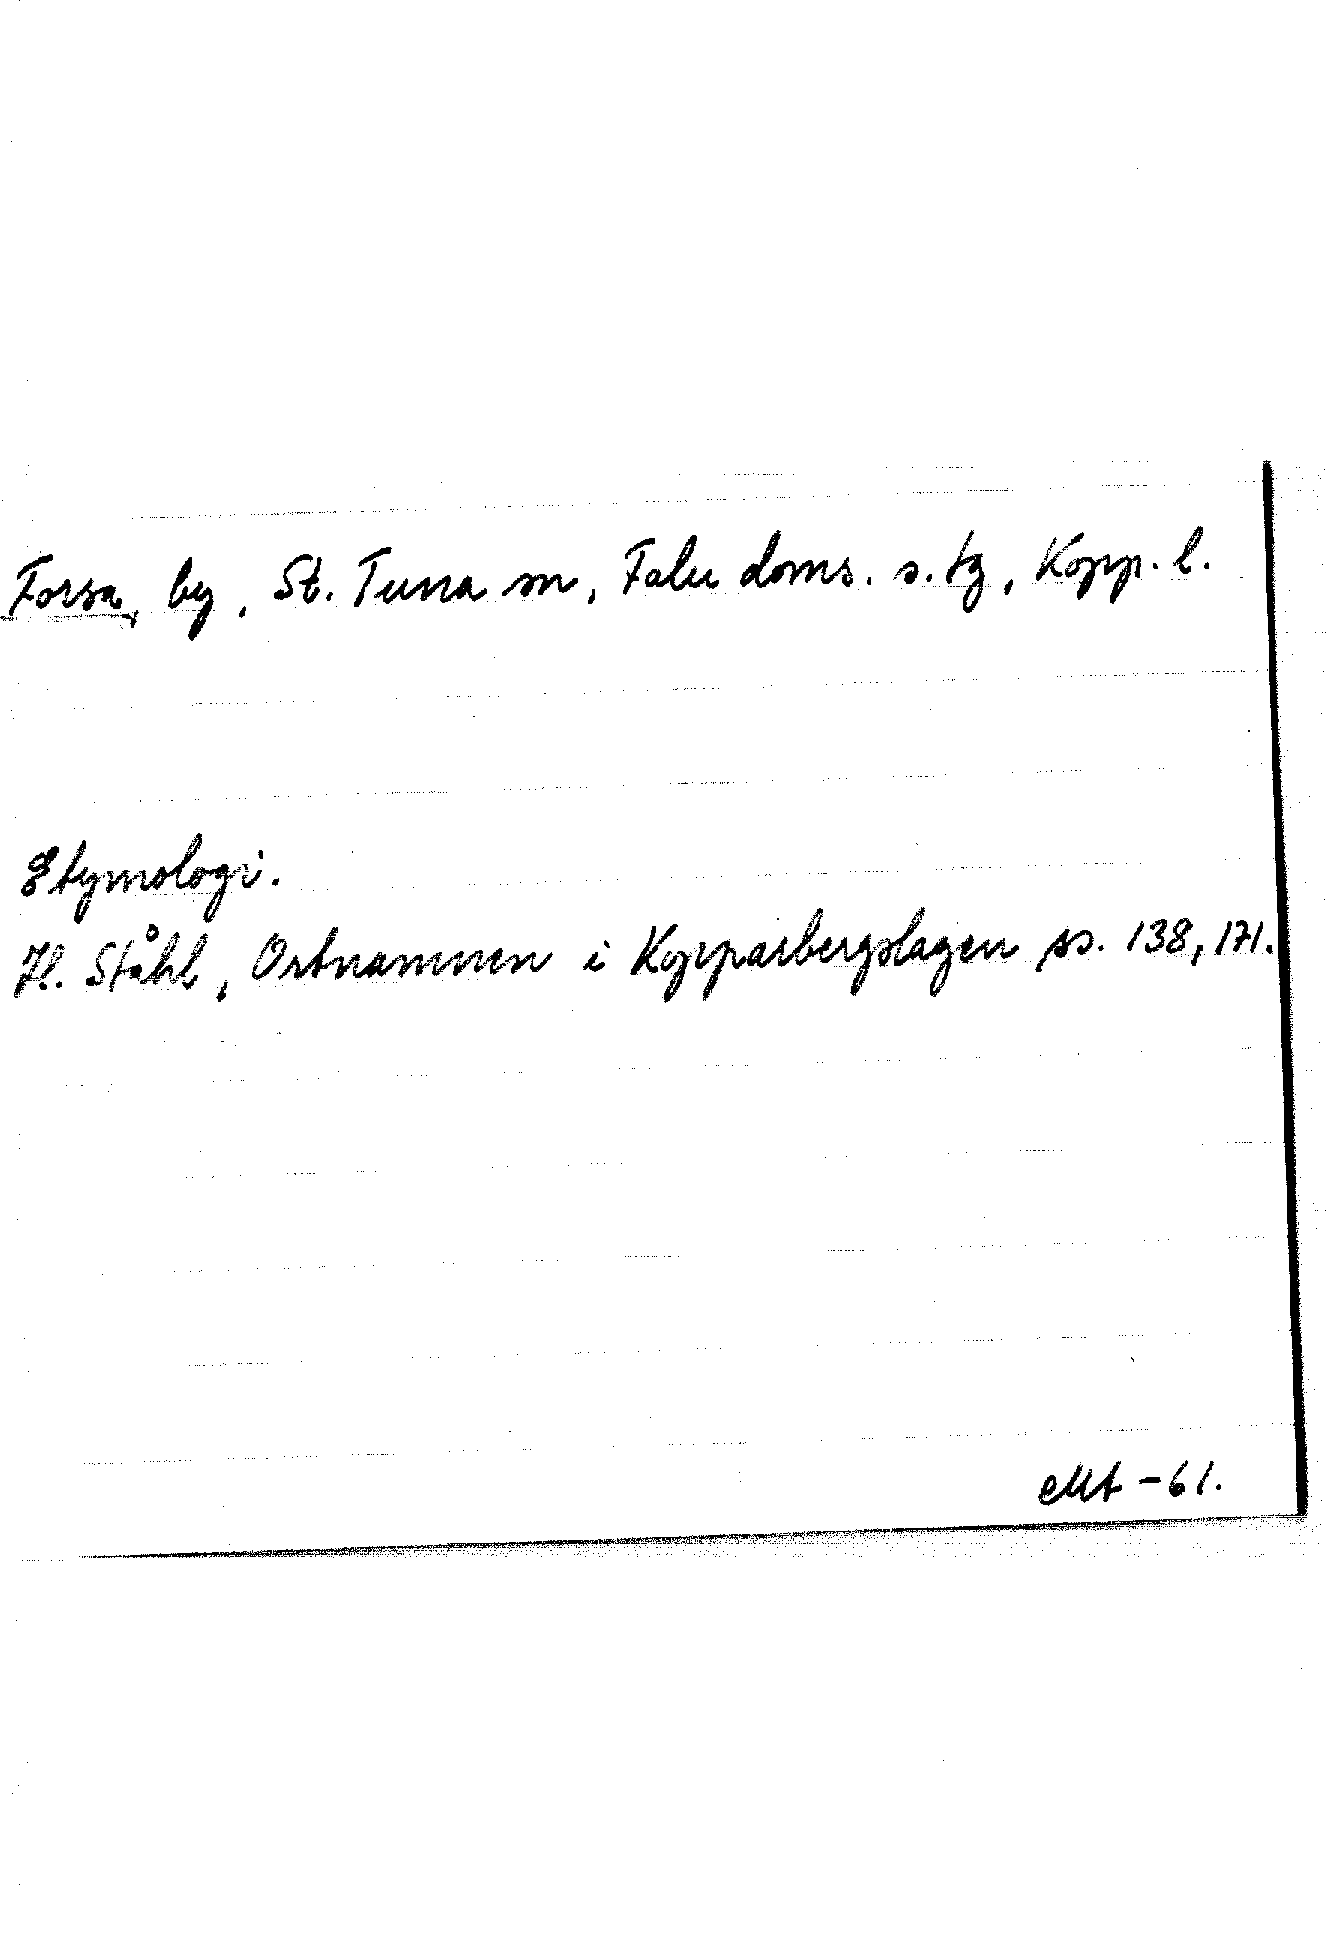 Forsa, by, St. Tuna sn, Falu doms. s. tg, Kopp. l.
Etymologi.
H. Ståhl, Ortnamnen i Kopparbergslagen ss. 138, 171.
Mt -61.